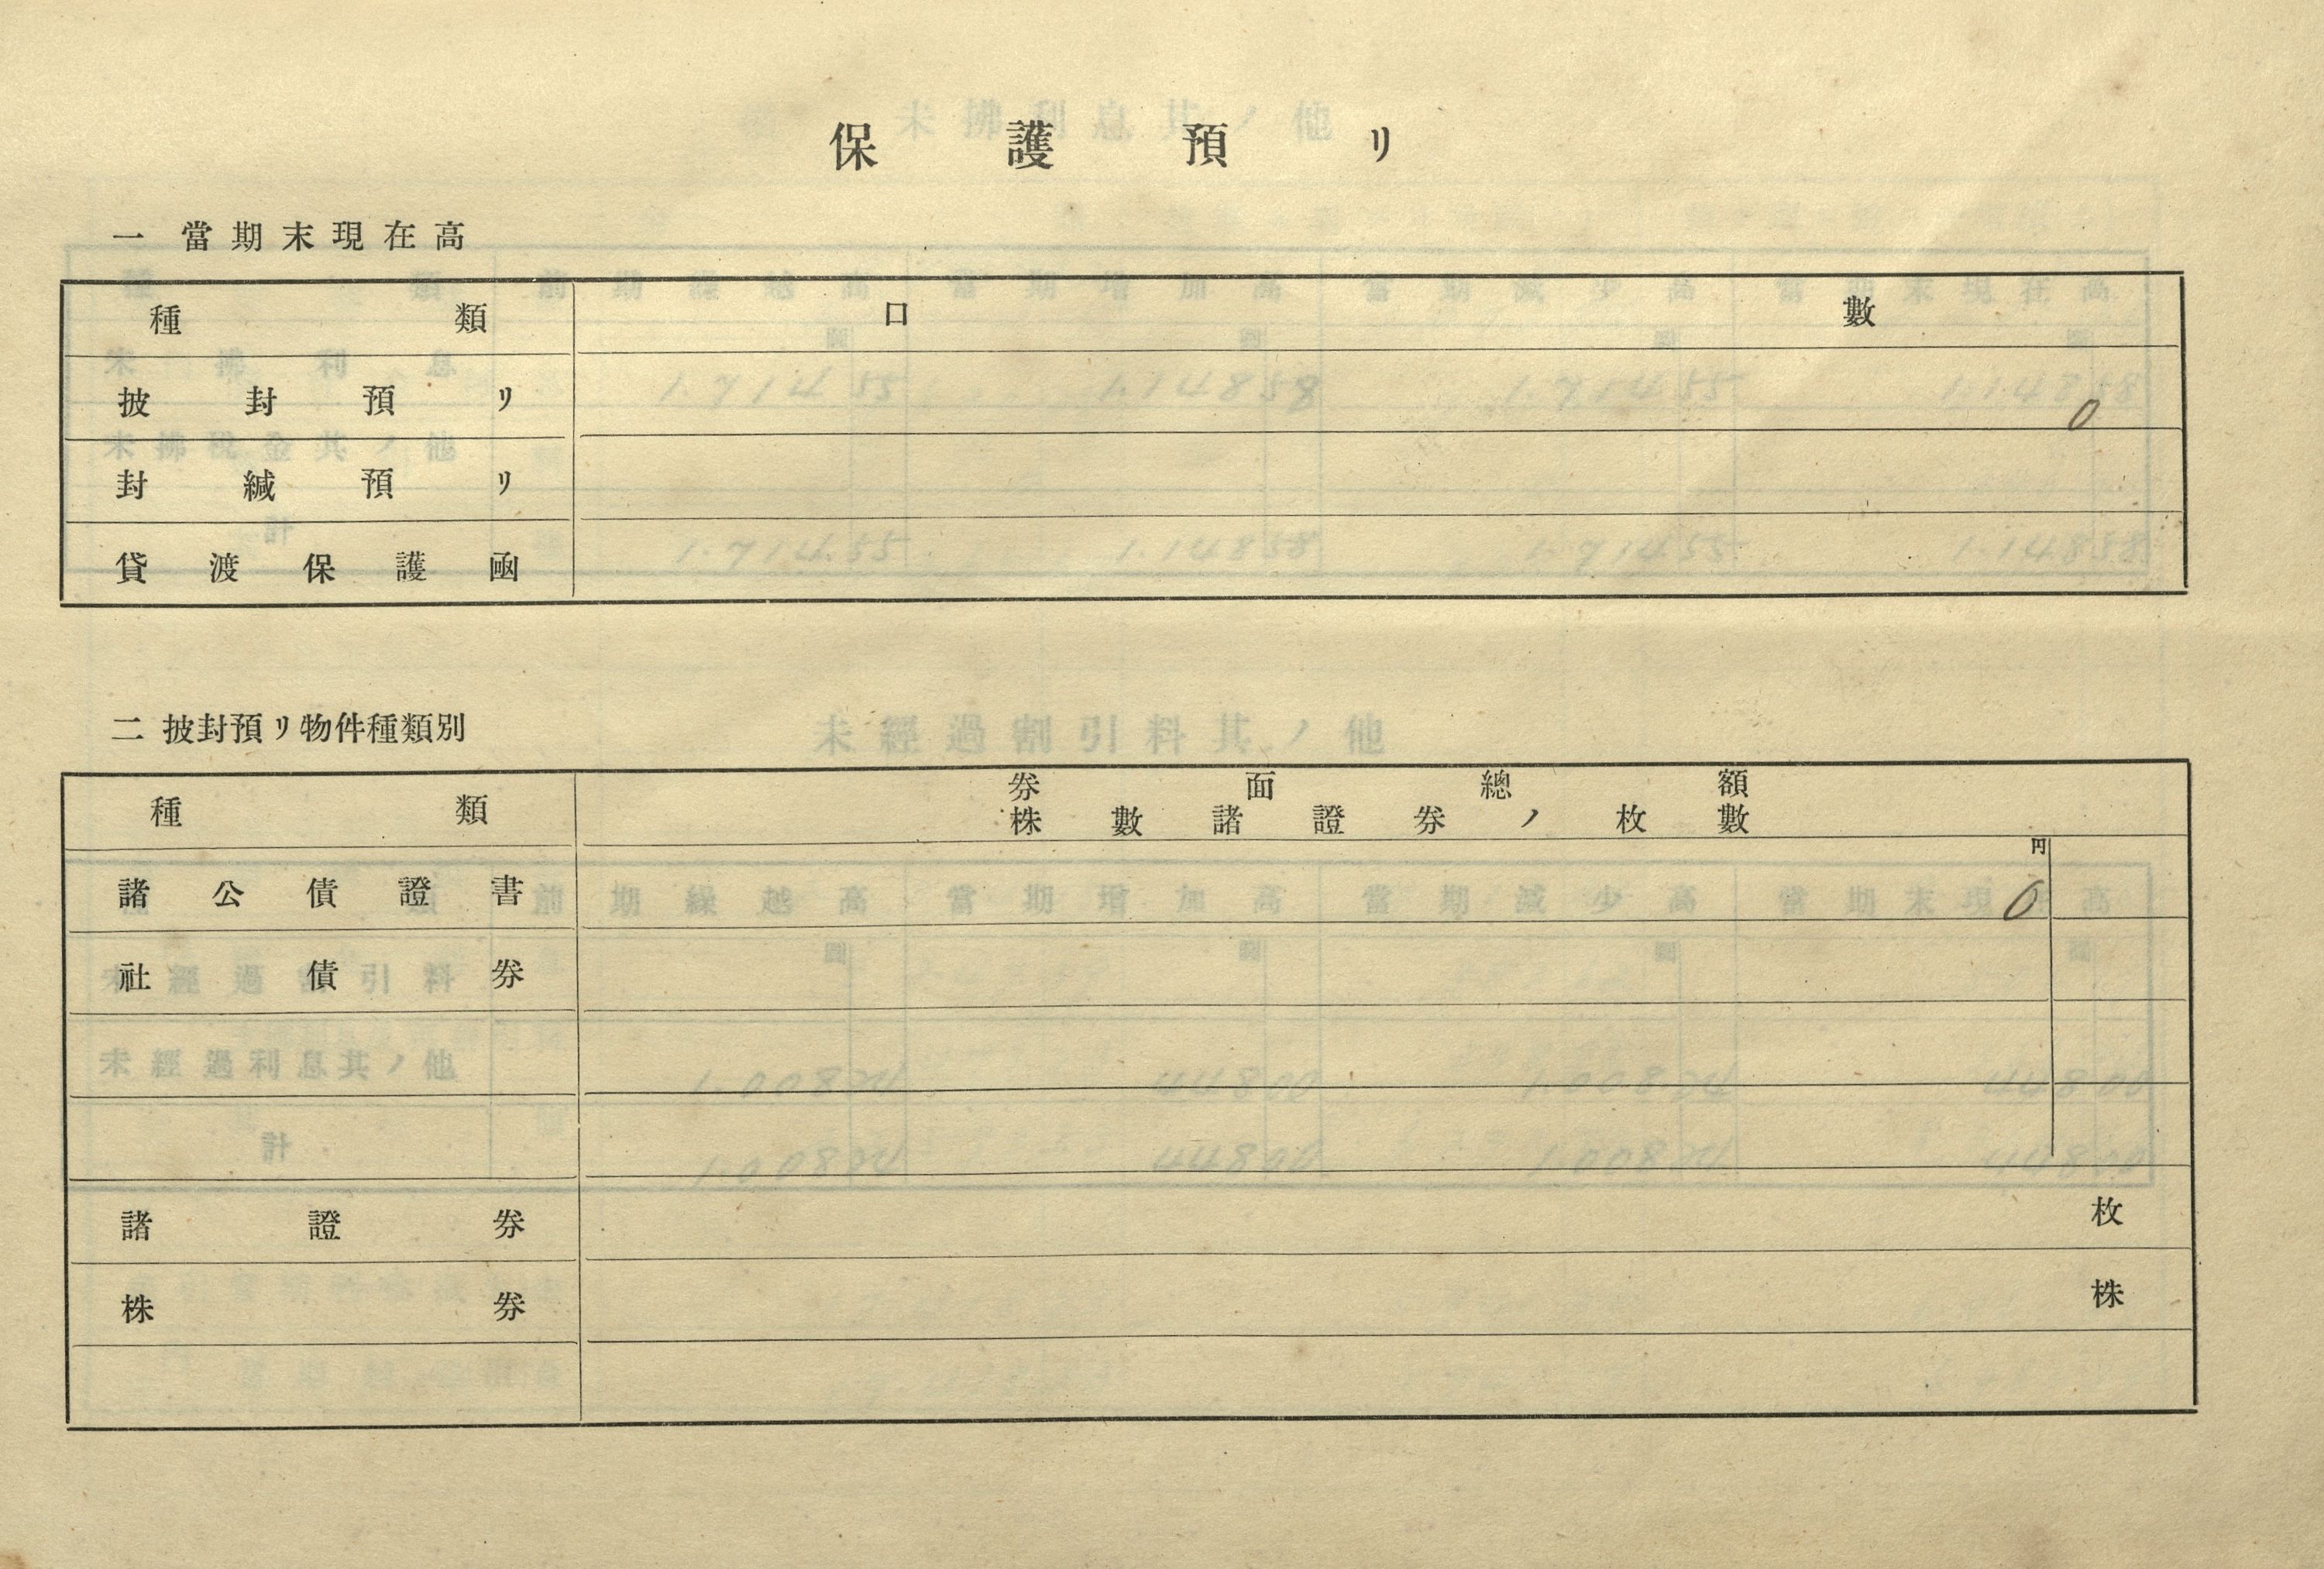 保護預リ
一 當期末現在高
種類 口數
披封預リ 0
封緘預リ
貸渡保護函
二 披封預リ物件種類別
種類 券面總額
株數諸證券ノ枚數
円
諸公債證書 0
社債券
諸證券 枚
株券 株